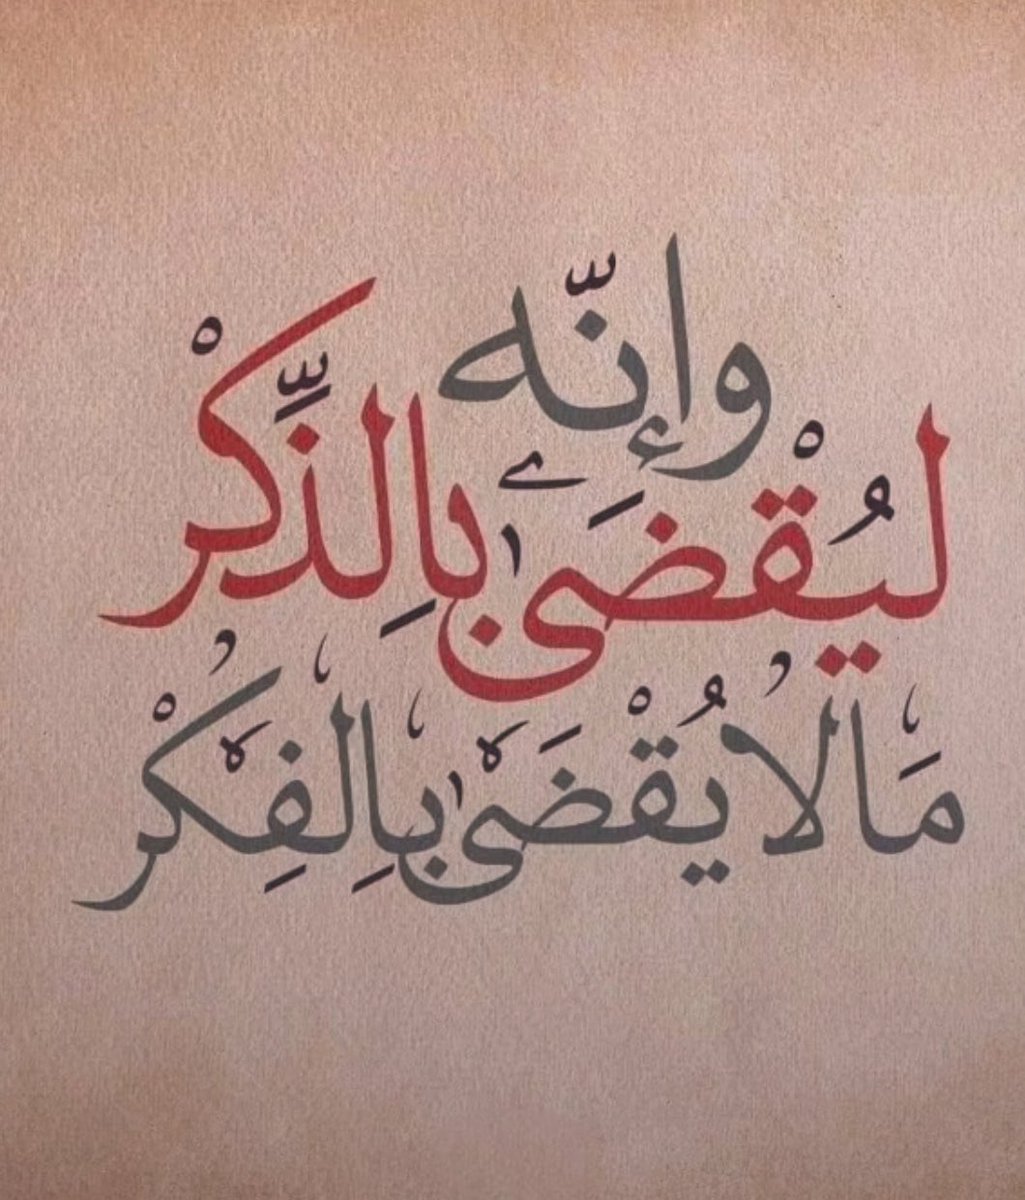 وإنّه
ليُقْضَى بالِذِّكرْ
مَا لا يُقْضَى بِالفِكَرْ